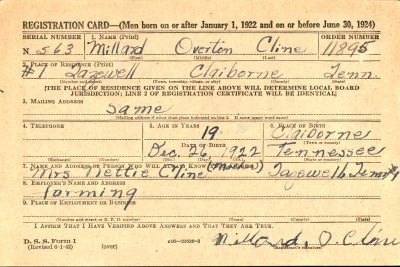 REGISTRATION CARD—(Men born on or after January 1, 1922 and on or before June 30, 1924)
SERIAL NUMBER 1. NAME (Print) ORDER NUMBER
N 563 Millard Overton Cline 11895
(First) (Middle) (Last)
2. PLACE OF RESIDENCE (Print)
#1 Tazewell Claiborne Tenn.
(Town, township, village, or city) (County) (State)
[THE PLACE OF RESIDENCE GIVEN ON THE LINE ABOVE WILL DETERMINE LOCAL BOARD
JURISDICTION; LINE 2 OF REGISTRATION CERTIFICATE WILL BE IDENTICAL]
3. MAILING ADDRESS
same
(Mailing address if other than place indicated on line 2. If same insert word same)
4. TELEPHONE 5. AGE IN YEARS 6. PLACE OF BIRTH
19 Claiborne
DATE OF BIRTH (Town or county)
Dec. 26, 1922 Tennessee
(Exchange) (Number) (Mo.) (Day) (Yr.) (State or country)
7. NAME AND ADDRESS OF PERSON WHO WILL ALWAYS KNOW YOUR ADDRESS
Mrs Nettie Cline (Mother) Tazewell, Tenn #1
8. EMPLOYER'S NAME AND ADDRESS
farming
9. PLACE OF EMPLOYMENT OR BUSINESS
(Number and street or R. F. D. number) (Town) (County) (State)
I AFFIRM THAT I HAVE VERIFIED ABOVE ANSWERS AND THAT THEY ARE TRUE.
D. S. S. Form 1
(Revised 6-1-42) (over) Millard O. Cline